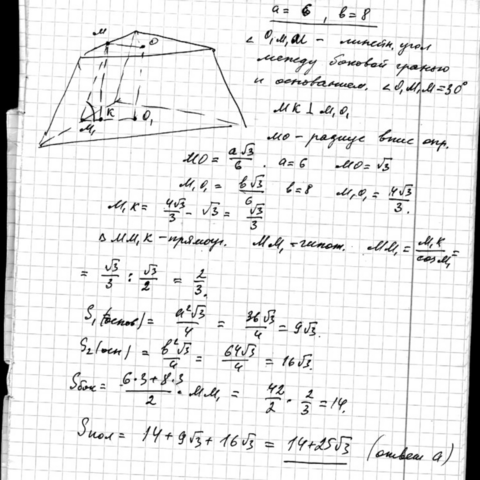 a = 6 , b = 8
∠ O₁M₁M - линейн. угол
между боковой гранью
и основанием. ∠O₁M₁M = 30°
MK ⊥ M₁O₁
MO - радиус впис окр.
MO = a√3/6 . a = 6 MO = √3
M₁O₁ = b√3/6 b = 8 M₁O₁ = 4√3/3.
M₁K = 4√3/3 - √3 = √3/3
Δ MM₁K - прямоуг. MM₁ - гипот. MM₁ = M₁K/cosM₁ =
= √3/3 : √3/2 = 2/3.
S₁(основ) = a²√3/4 = 36√3/4 = 9√3.
S₂(осн) = b²√3/4 = 64√3/4 = 16√3.
Sбок = (6·3+8·3)/2 · MM₁ = 42/2 · 2/3 = 14.
Sпол = 14 + 9√3 + 16√3 = 14+25√3 (ответ а)
M
O
M₁
K
O₁